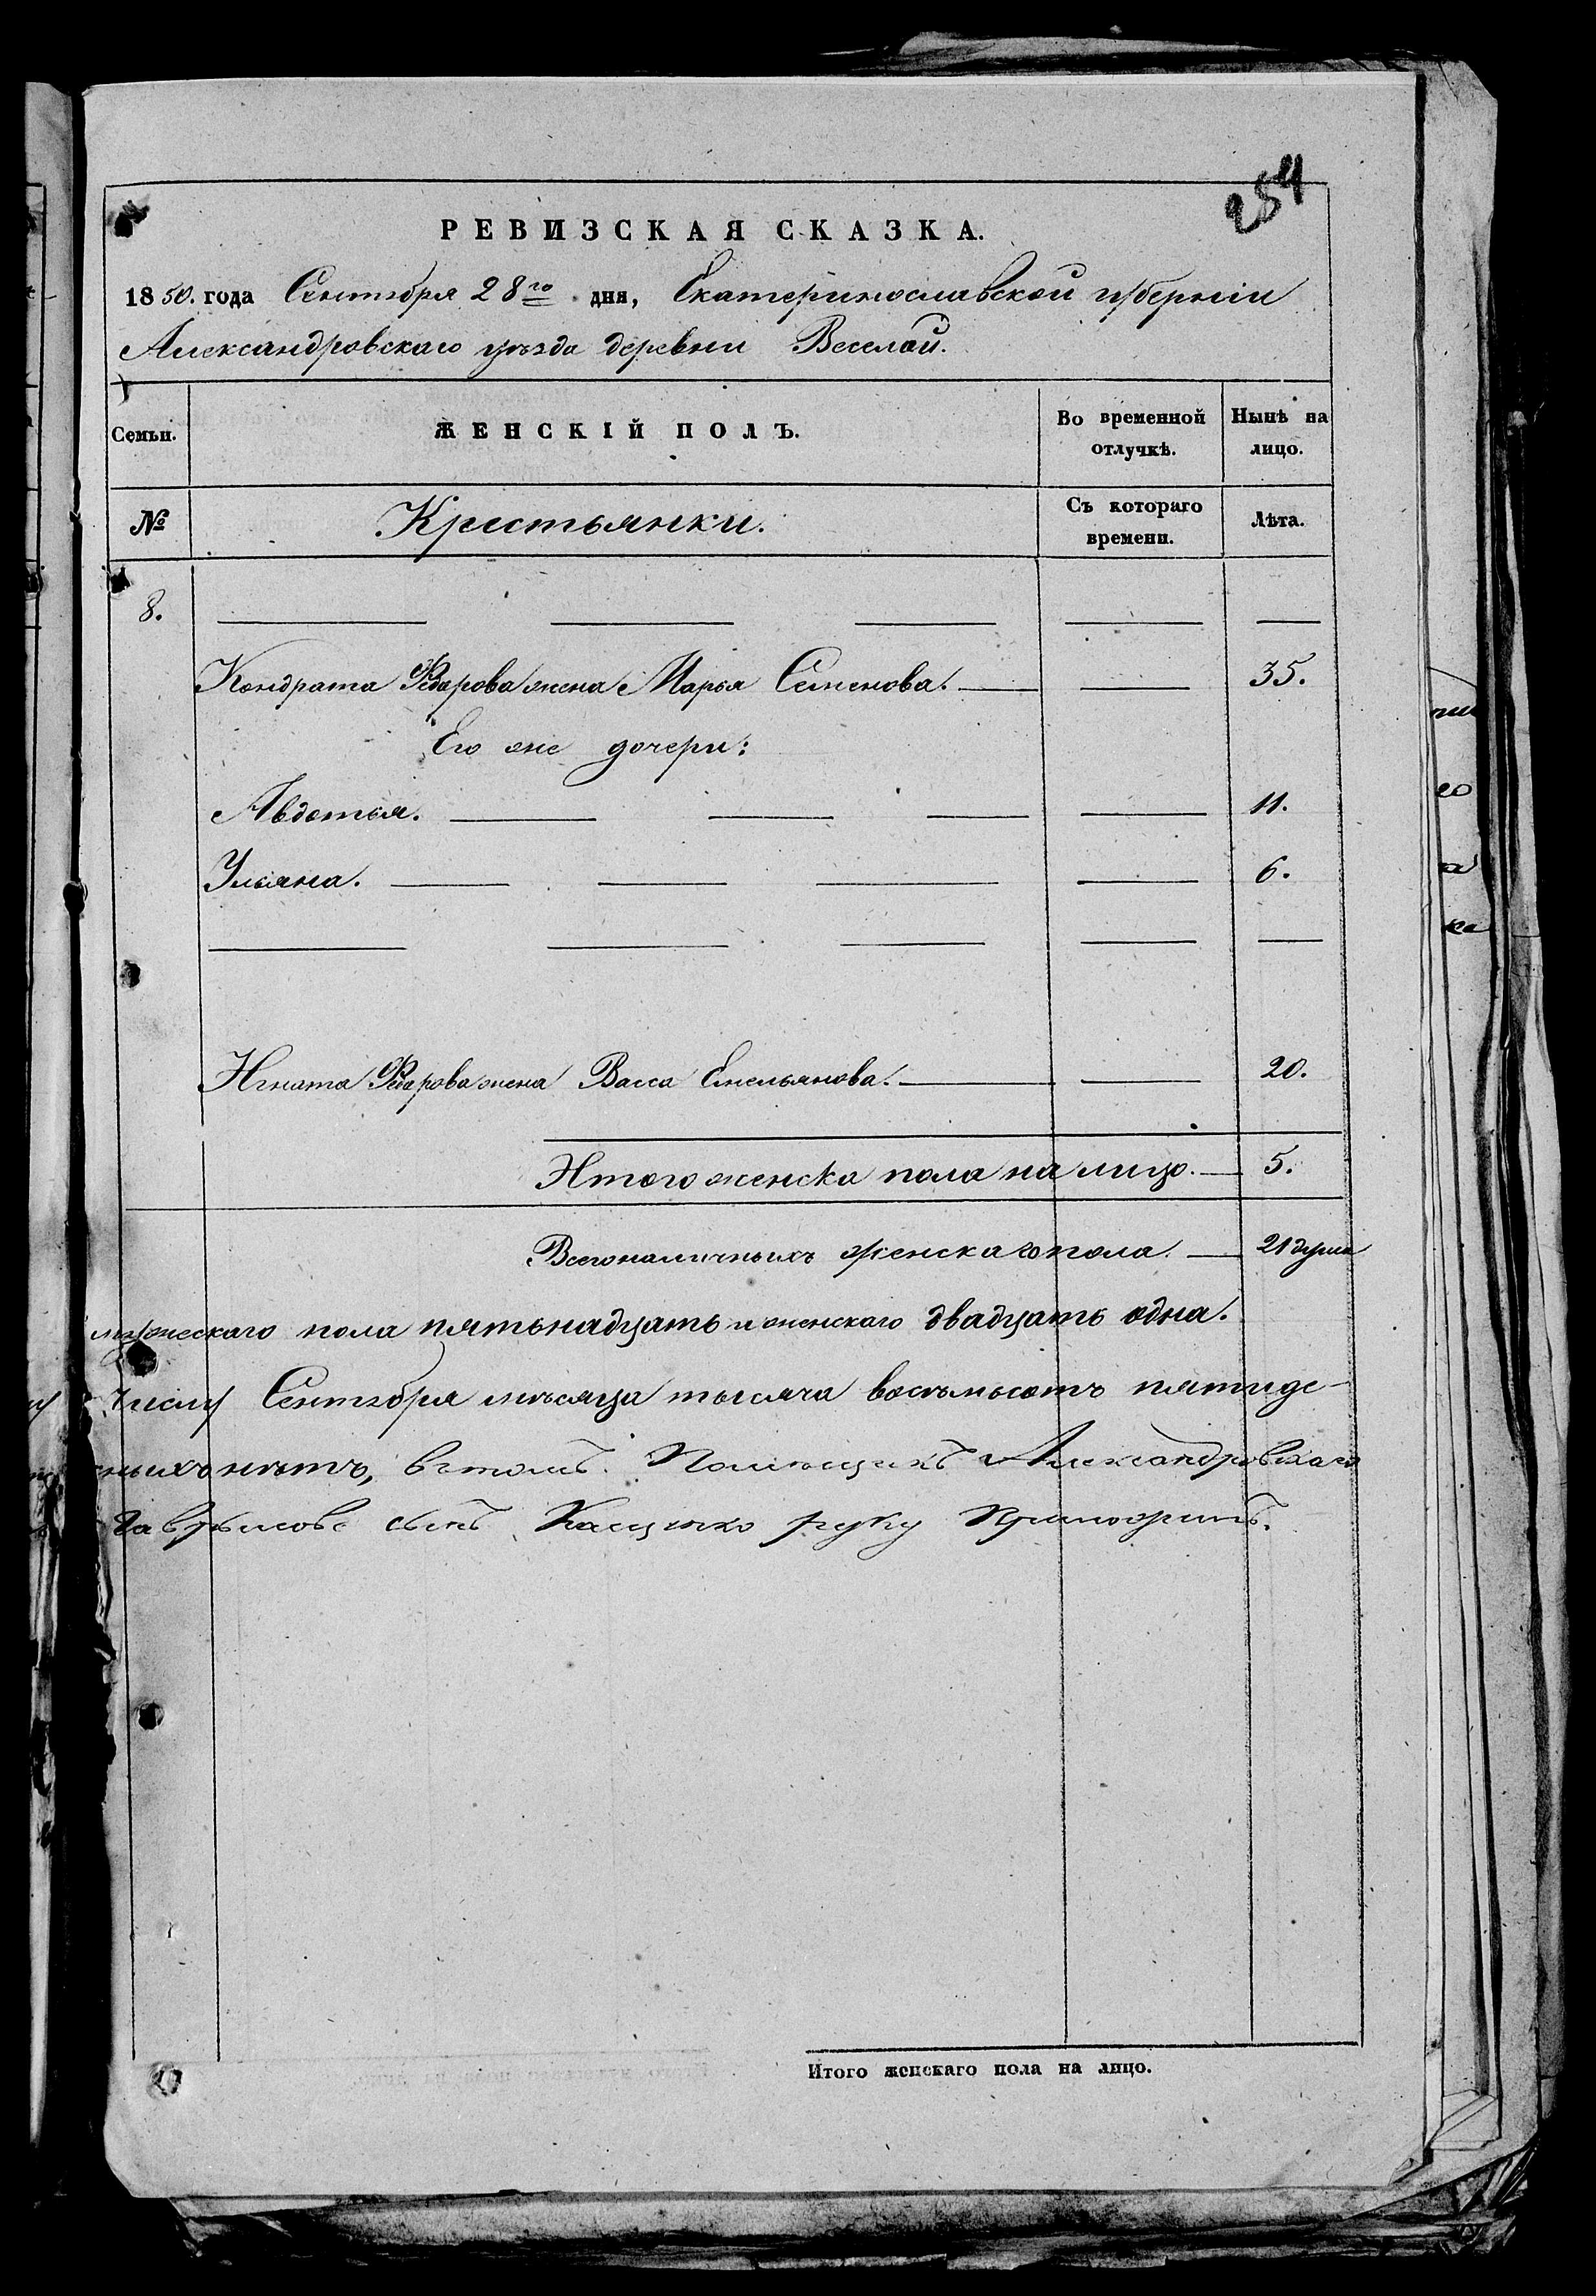 254
РЕВИЗСКАЯ СКАЗКА.
1850. года Сентября 28го дня, Екатеринославской губерніи
Александровскаго уѣзда деревни Веселой.
Семьи. ЖЕНСКІЙ ПОЛЪ. Во временной отлучкѣ. Нынѣ на лицо.
№ Крестьянки. Съ котораго времени. Лѣта.
8.
Кондрата Федорова жена Марья Семенова. 35.
Его же дочери:
Авдотья. 11.
Ульяна. 6.
Игната Федорова жена Васса Емельянова. 20.
Итого женска пола на лицо. 5.
Всего наличныхъ женскаго пола. 21 душа
мужескаго пола пятьнадцать и женскаго двадцать одна.
числу Сентября мѣсяца тысяча восемьсотъ пятиде-
ныхъ нѣтъ, въ томъ. Помещикъ Александровскаго
Гаврилове сынъ руку приложилъ.
Итого женскаго пола на лицо.